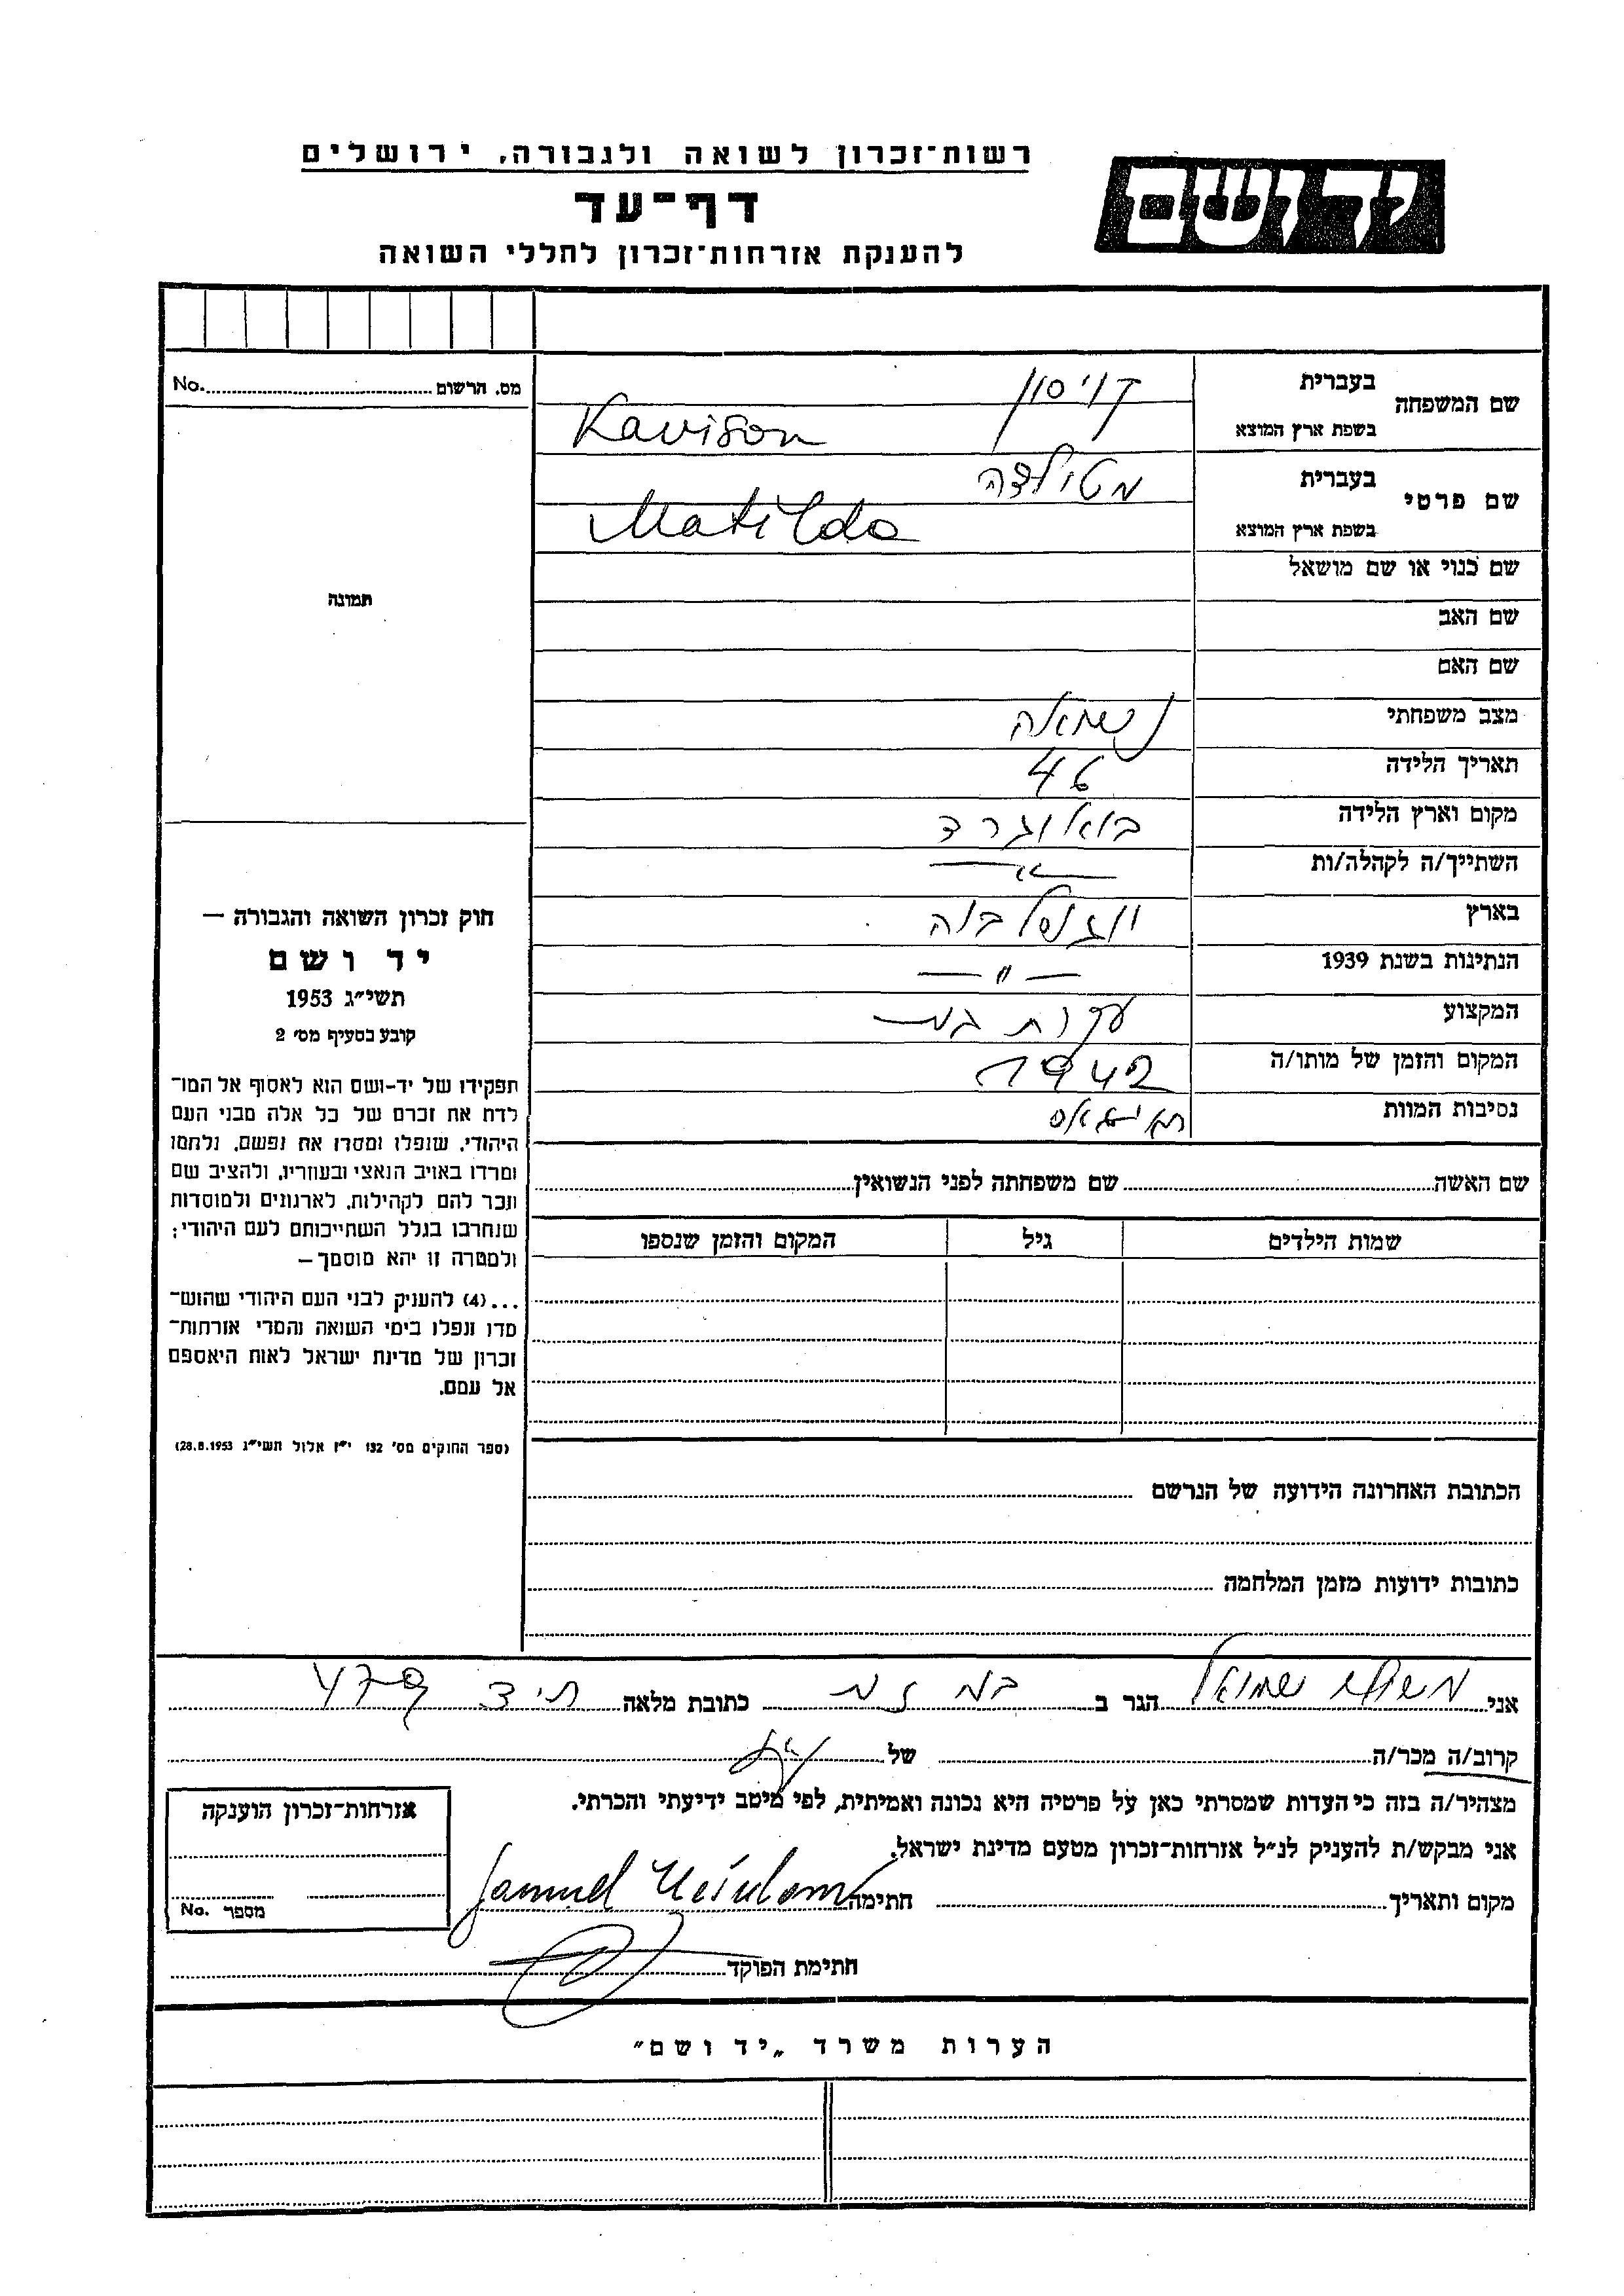 רשות־זכרון לשואה ולגבורה, ירושלים
יד ושם
דף־עד
להענקת אזרחות־זכרון לחללי השואה
שם המשפחה בעברית קויסון
בשפת ארץ המוצא Kavison
שם פרטי בעברית מטילדה
בשפת ארץ המוצא Matilda
שם כנוי או שם מושאל
שם האב
שם האם
מצב משפחתי נשואה
תאריך הלידה 46
מקום וארץ הלידה
השתייך/ה לקהלה/ות — " —
בארץ
הנתינות בשנת 1939 — " —
המקצוע עקרת בית
המקום והזמן של מותו/ה 1942
נסיבות המוות
שם האשה שם משפחתה לפני הנשואין
שמות הילדים גיל המקום והזמן שנספו
הכתובת האחרונה הידועה של הנרשם
כתובות ידועות מזמן המלחמה
מס. הרשום No.
תמונה
חוק זכרון השואה והגבורה —
יד ושם
תשי״ג 1953
קובע בסעיף מס׳ 2
תפקידו של יד-ושם הוא לאסוף אל המו־
לדת את זכרם של כל אלה מבני העם
היהודי, שנפלו ומסרו את נפשם, נלחמו
ומרדו באויב הנאצי ובעוזריו, ולהציב שם
וזכר להם לקהילות, לארגונים ולמוסדות
שנחרבו בגלל השתייכותם לעם היהודי;
ולמטרה זו יהא מוסמך—
...(4) להעניק לבני העם היהודי שהוש־
מדו ונפלו בימי השואה והמרי אזרחות־
זכרון של מדינת ישראל לאות היאספם
אל עמם.
(ספר החוקים מס׳ 132 י״ז אלול תשי״ג 28.8.1953)
אני שמואל הגר ב בת ים כתובת מלאה ת.י.ד
קרוב/ה מכר/ה של
מצהיר/ה בזה כי העדות שמסרתי כאן על פרטיה היא נכונה ואמיתית, לפי מיטב ידיעתי והכרתי.
אני מבקש/ת להעניק לנ״ל אזרחות־זכרון מטעם מדינת ישראל.
מקום ותאריך חתימה Samuel
חתימת הפוקד
אזרחות־זכרון הוענקה
מספר No.
הערות משרד „יד ושם״